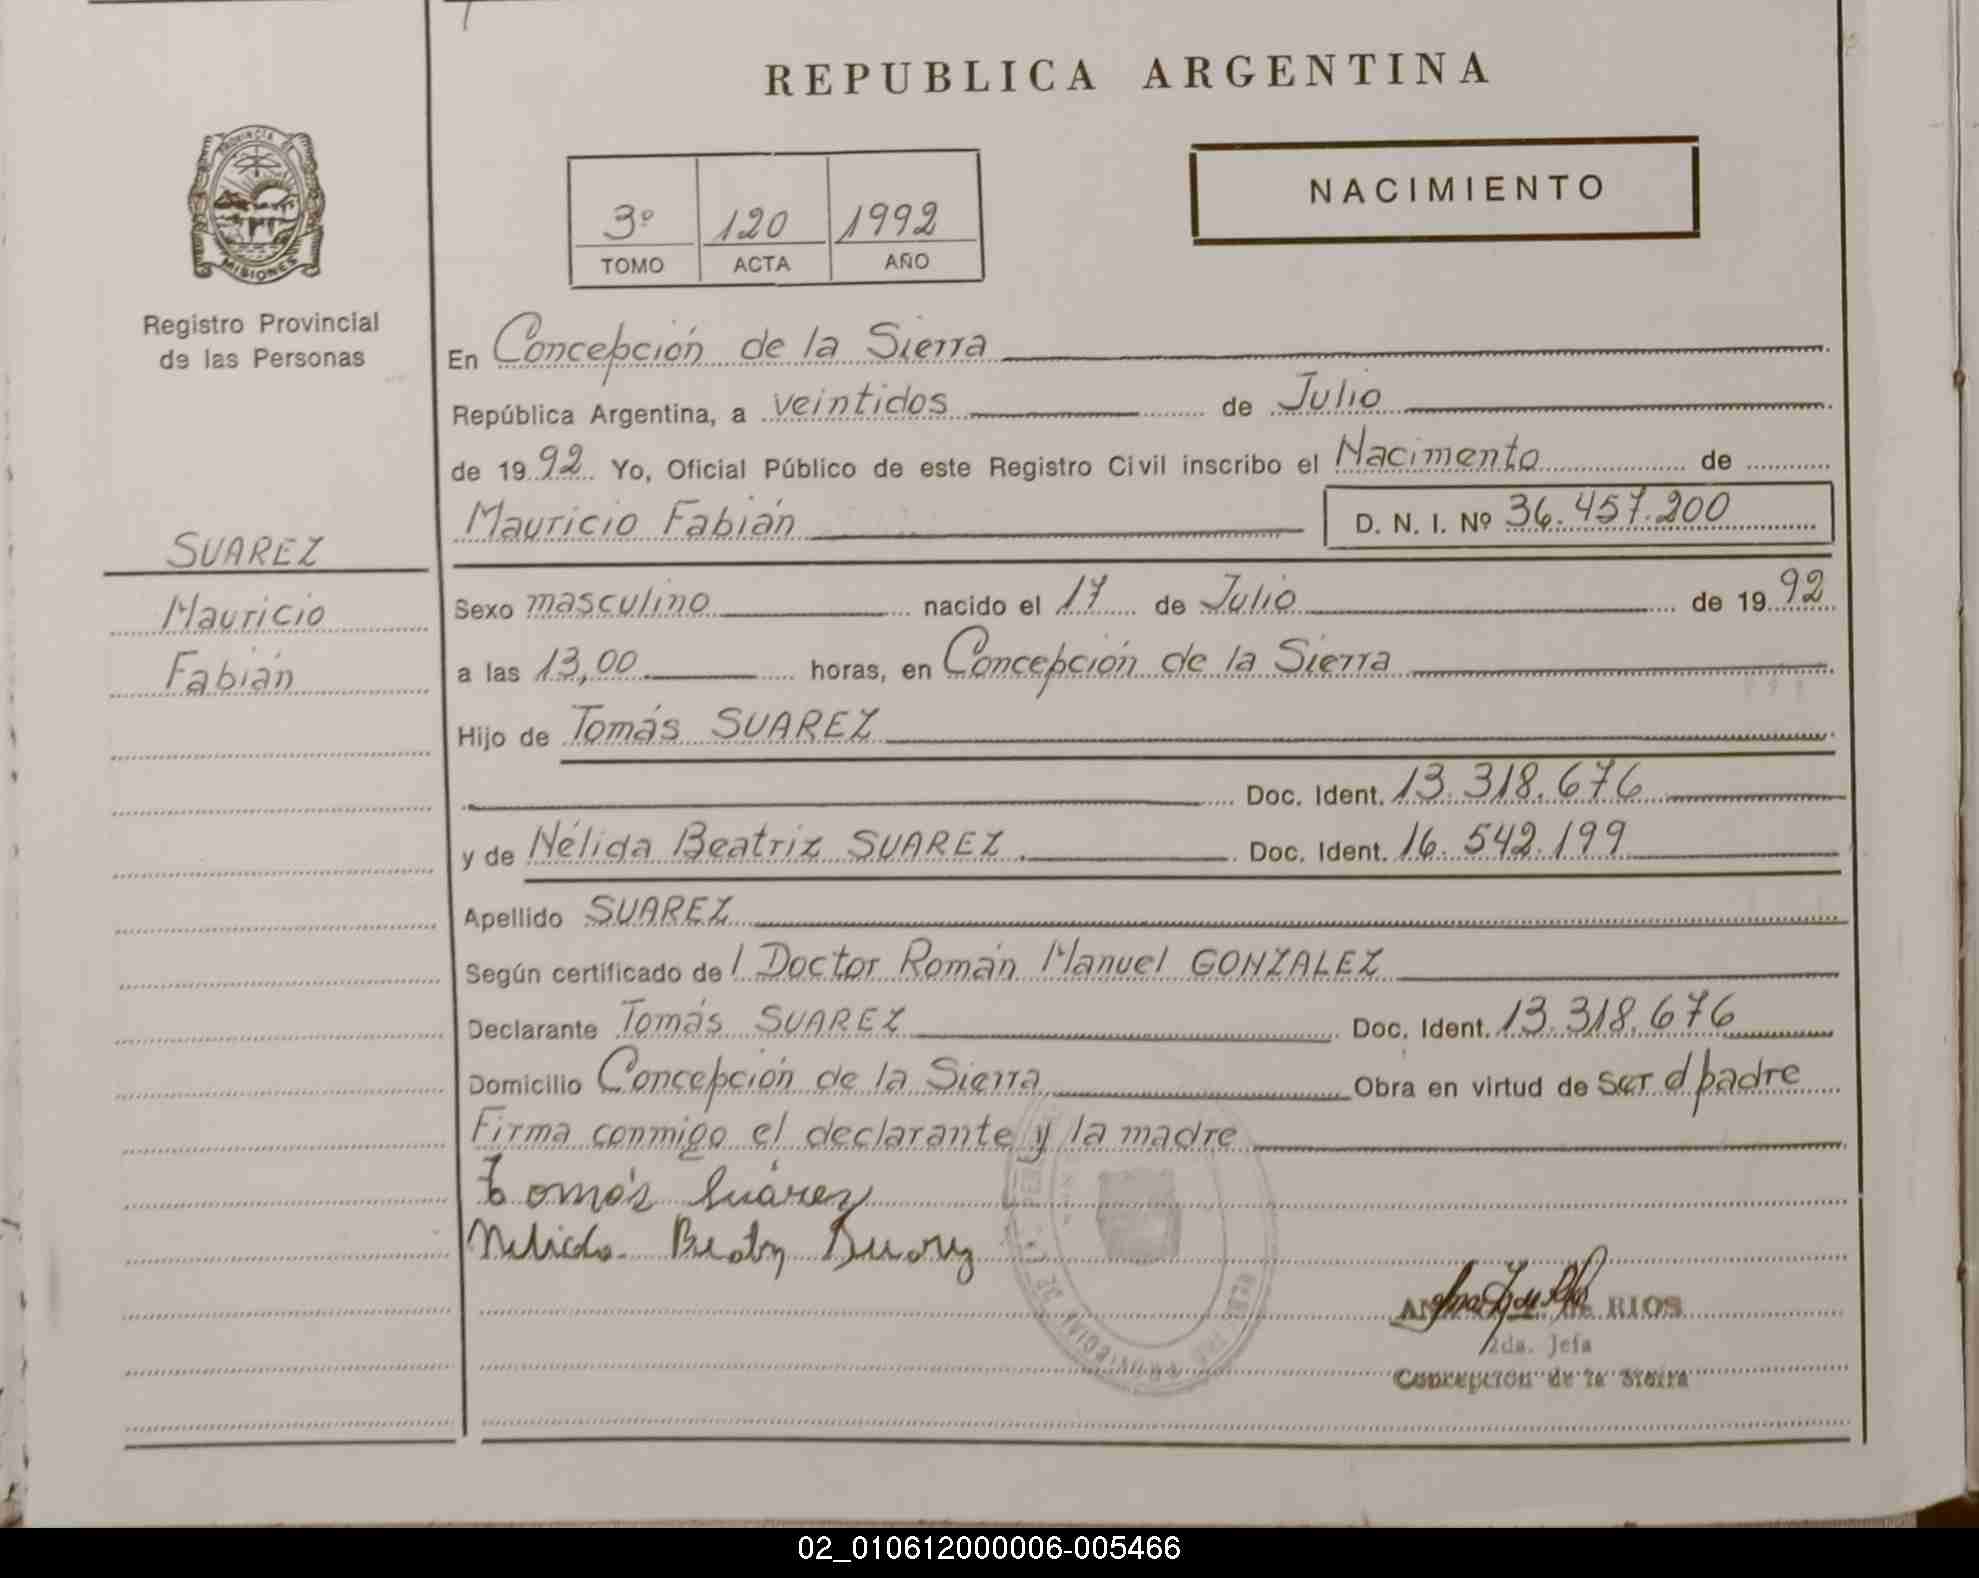 REPUBLICA ARGENTINA
PROVINCIA DE
MISIONES
Registro Provincial
de las Personas
3º 120 1992
TOMO ACTA AÑO
NACIMIENTO
En Concepción de la Sierra
República Argentina, a veintidos de Julio
de 1992 Yo, Oficial Público de este Registro Civil inscribo el Nacimento de
Mauricio Fabián D. N. I. Nº 36.457.200
SUAREZ
Mauricio
Fabián
Sexo masculino nacido el 17 de Julio de 1992
a las 13,00 horas, en Concepción de la Sierra
Hijo de Tomás SUAREZ
Doc. Ident. 13.318.676
y de Nélida Beatriz SUAREZ. Doc. Ident. 16.542.199
Apellido SUAREZ
Según certificado de l Doctor Román Manuel GONZALEZ
Declarante Tomás SUAREZ Doc. Ident. 13.318.676
Domicilio Concepción de la Sierra Obra en virtud de ser el padre
Firma conmigo el declarante y la madre
Tomás Suárez
Nelida Beatriz Suarez
de RIOS
2da. Jefa
Concepción de la Sierra
02_010612000006-005466